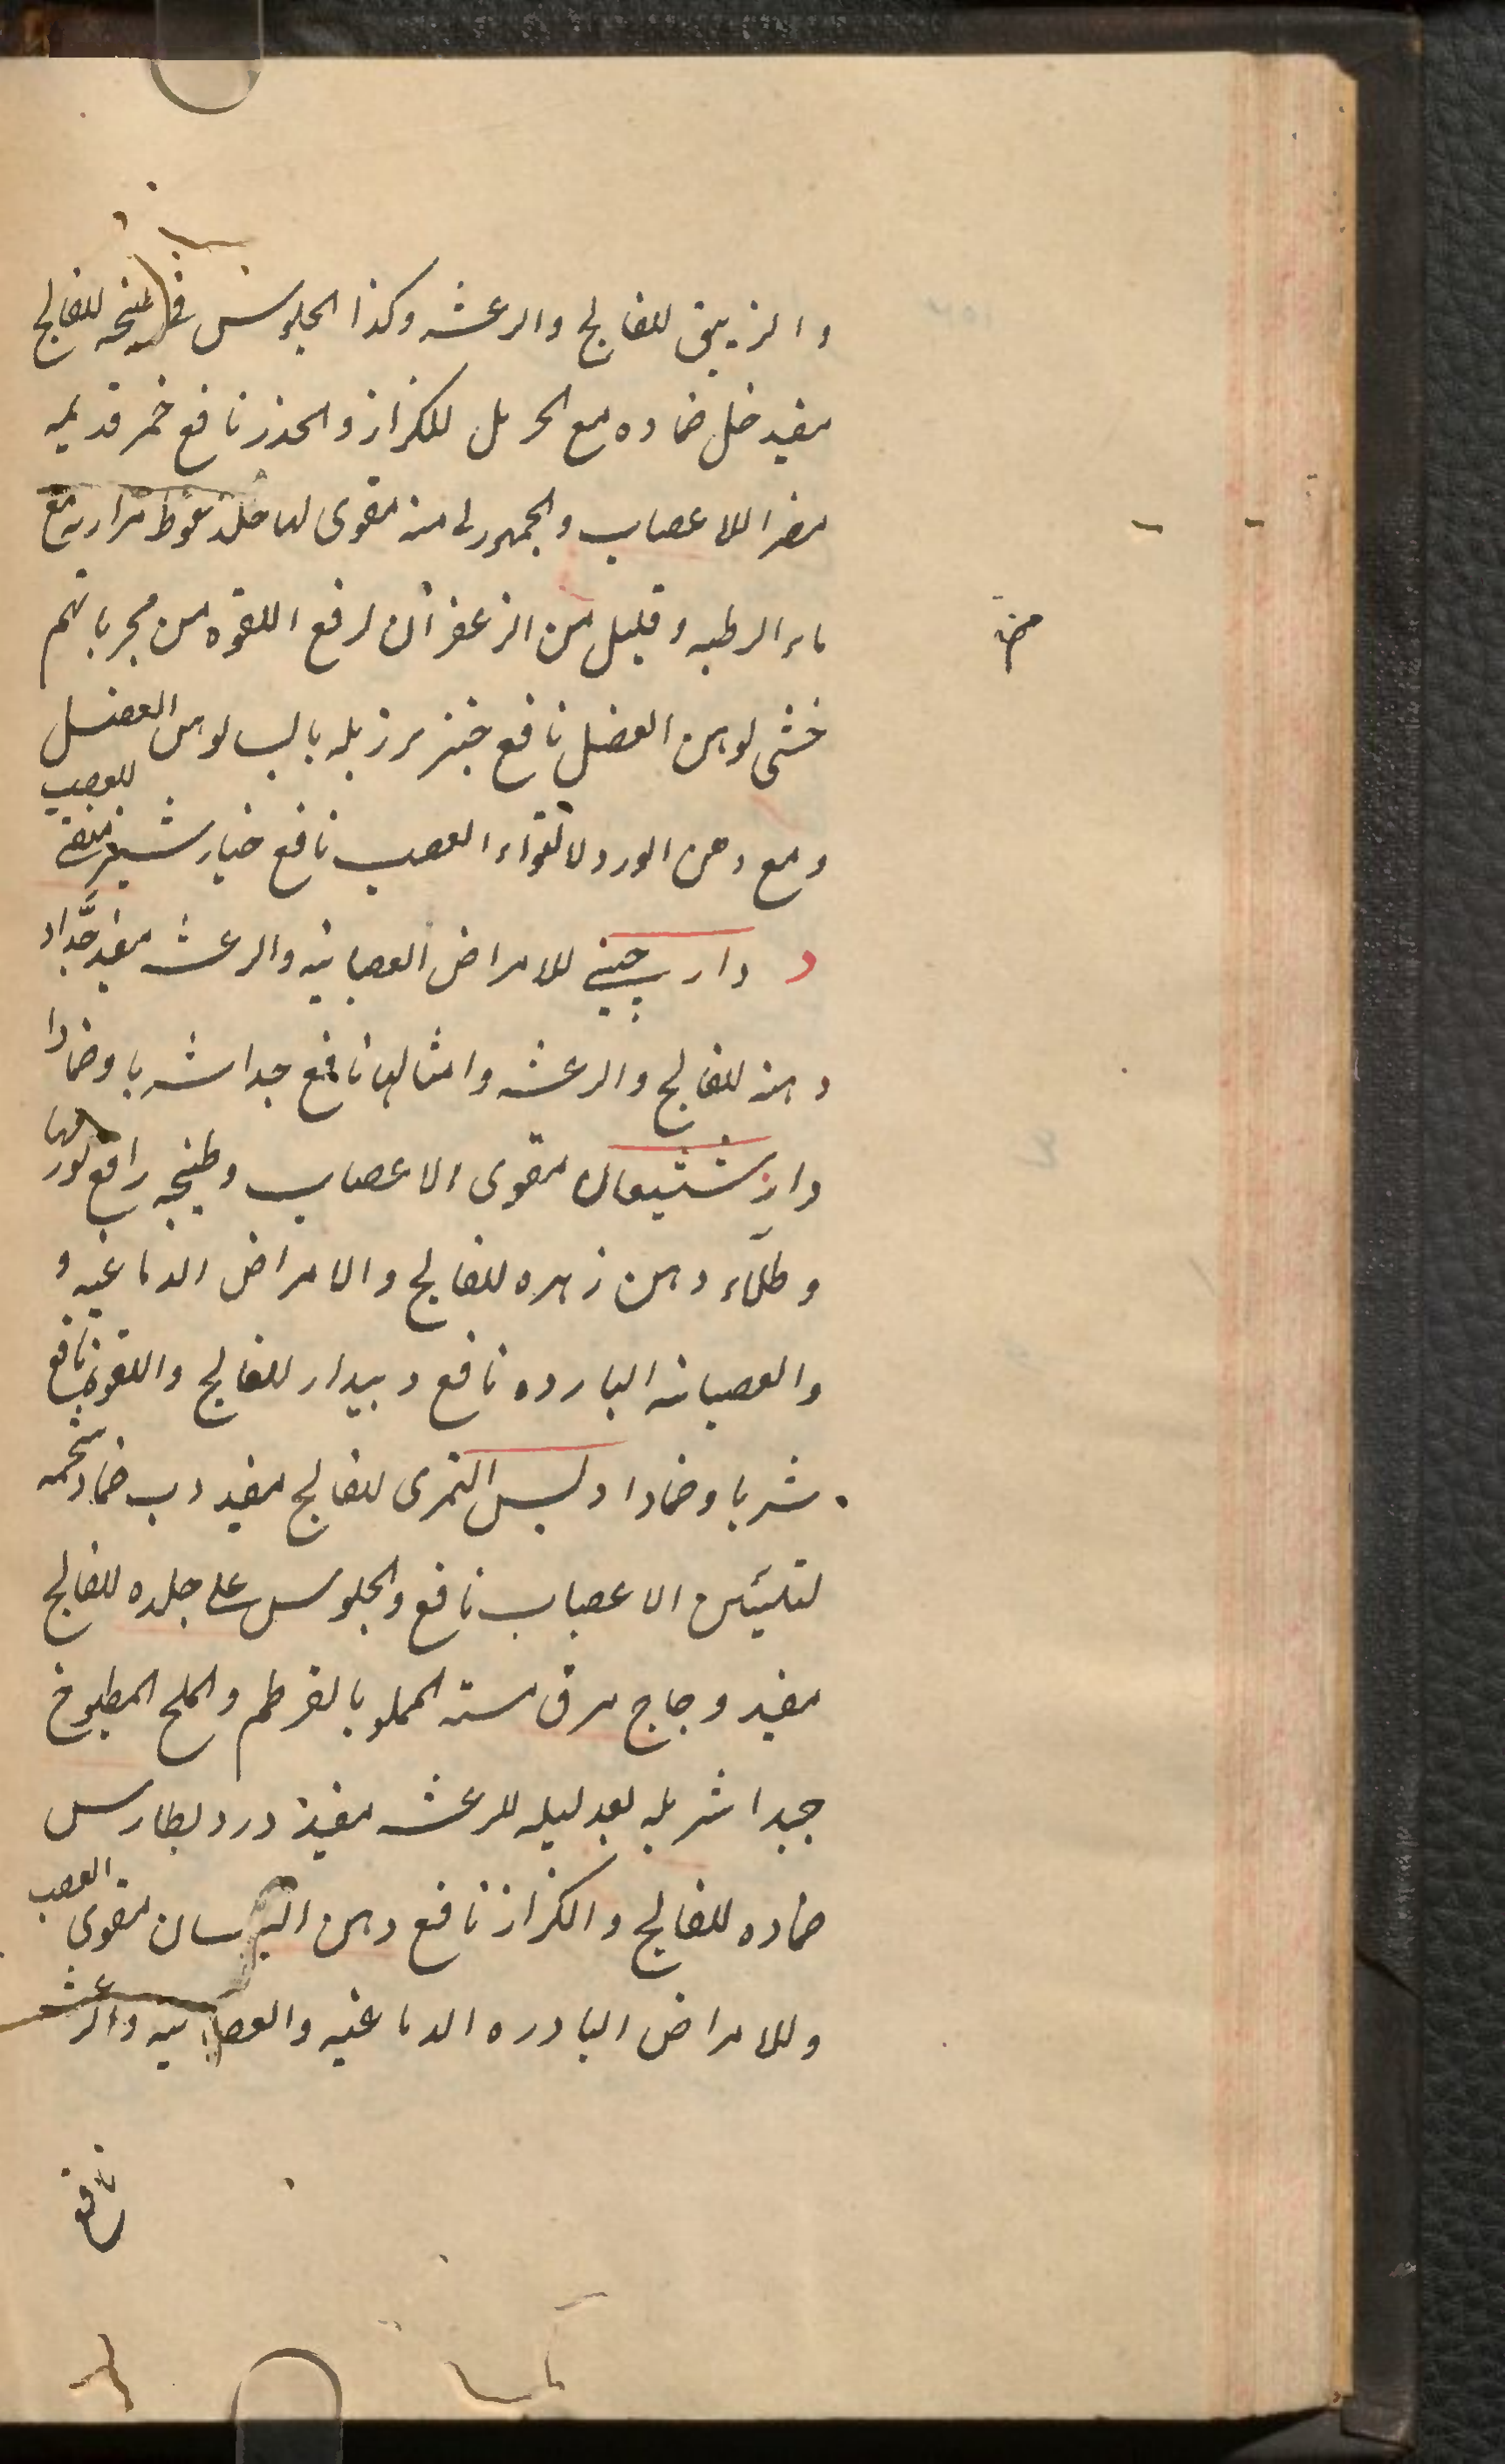 والزيبق للفالج والرعشه وكذا الجلوس فی طبيخه للفالج
مفيد خل ضماده مع الحرمل للكزاز والخدر نافع خمر قديمه
مضر اللاعصاب والجمهوری منه مقوی لها خلد سعوط مرارته مع
ماء الرطبه وقليل من الزعفران لرفع اللقوه من مجرباتهم
خنثی لوهن العضل نافع خنزير زبله بالب لوهن العضل
ومع دهن الورد لالتواء العصب نافع خيار شنبر منقی للعصب
د دارچينی للامراض العصبانيه والرعشه مفيد جدا و
دهنه للفالج والرعشه وامثالها نافع جدا شربا وضمادا
دارشيشعان مقوی الاعصاب وطبيخه رافع
وطلاء دهن زهره للفالج والامراض الدماغيه و
والعصبانه البارده نافع دبيدار للفالج واللقوه نافع
شربا وضمادا دبس التمری للفالج مفيد دب ضماد شحمه
لتليين الاعصاب نافع والجلوس علی جلده للفالج
مفيد دجاج مرق مسنه المملو بالقرطم والملح المطبوخ
جيدا شربه بعد ليله للرعشه مفيد دردبطارس
ضماده للفالج والكزاز نافع دهن البلسان مقوی العصب
وللامراض البارده الدماغيه والعصبانيه والرعشه
نافع